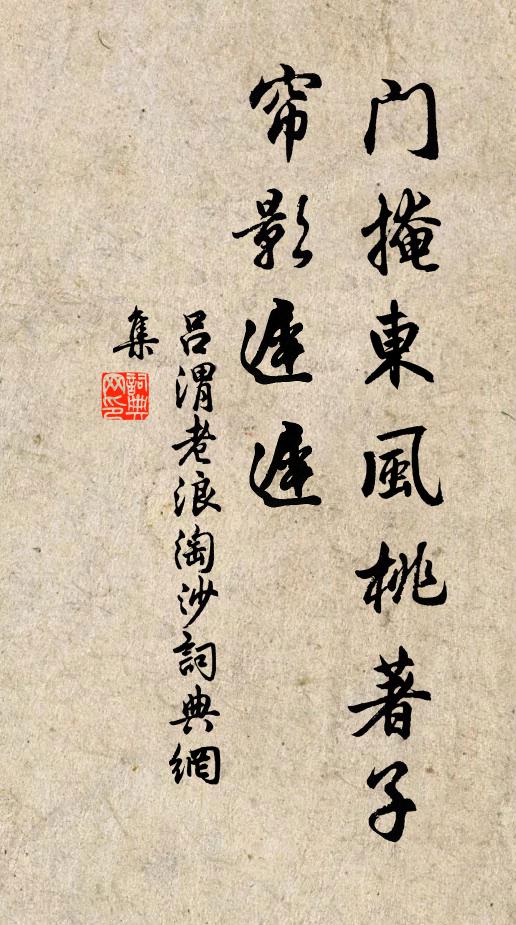 门掩東風桃著子
帘影遲遲
吕渭老浪淘沙詞典網
集
詞典
网印